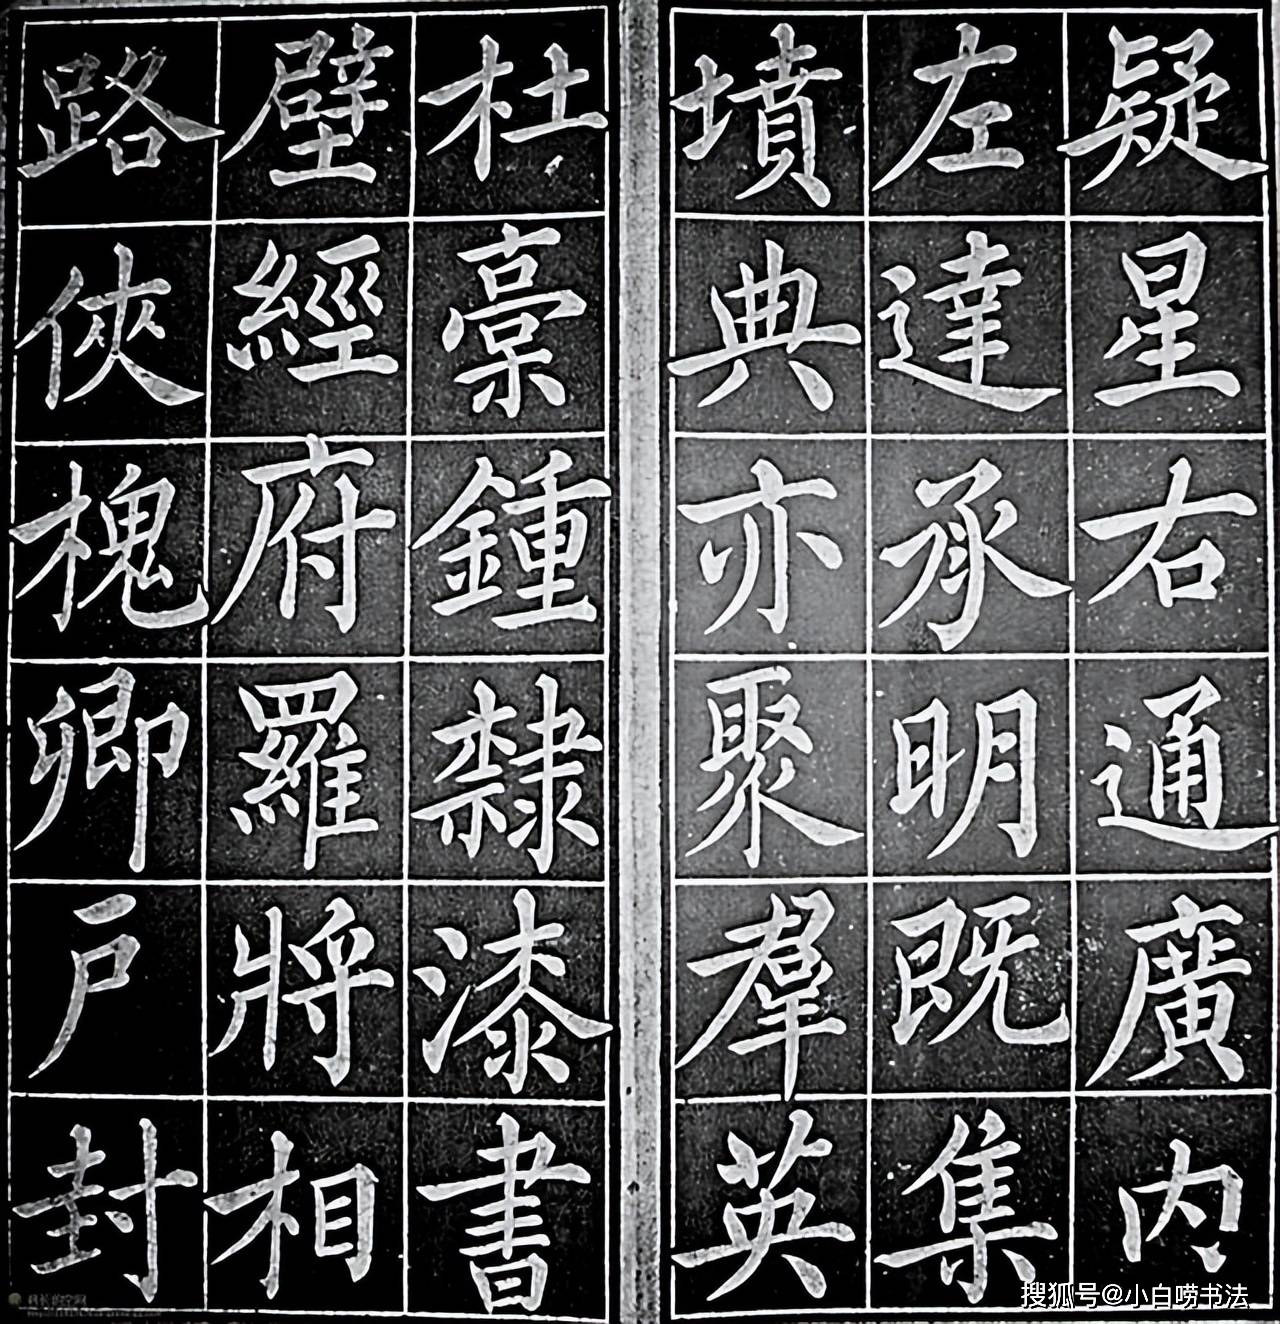 疑星右通廣内
左達承明既集
墳典亦聚羣英
杜稾鍾隸漆書
壁經府羅將相
路俠槐卿戶封
搜狐号@小白唠书法